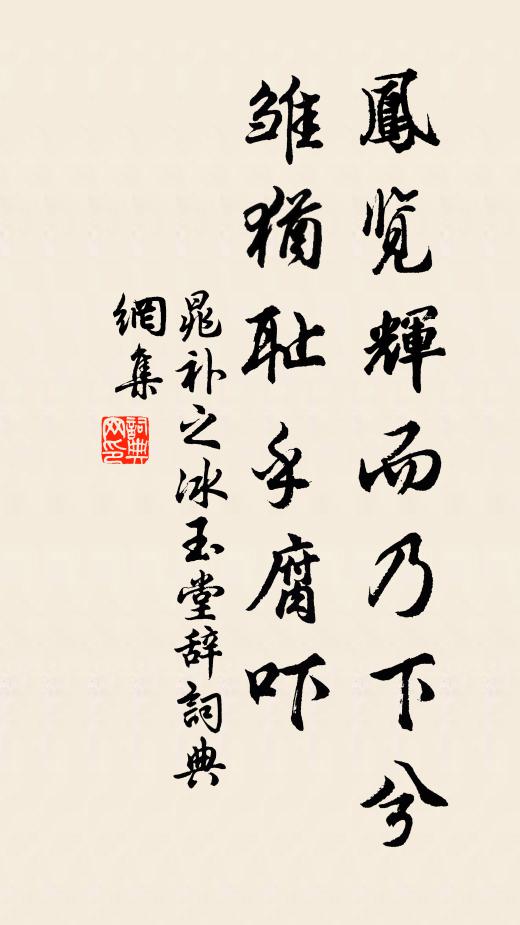 鳳览輝而乃下兮
雏猶耻乎腐吓
晁补之冰玉堂辞詞典
網集
詞典
网印